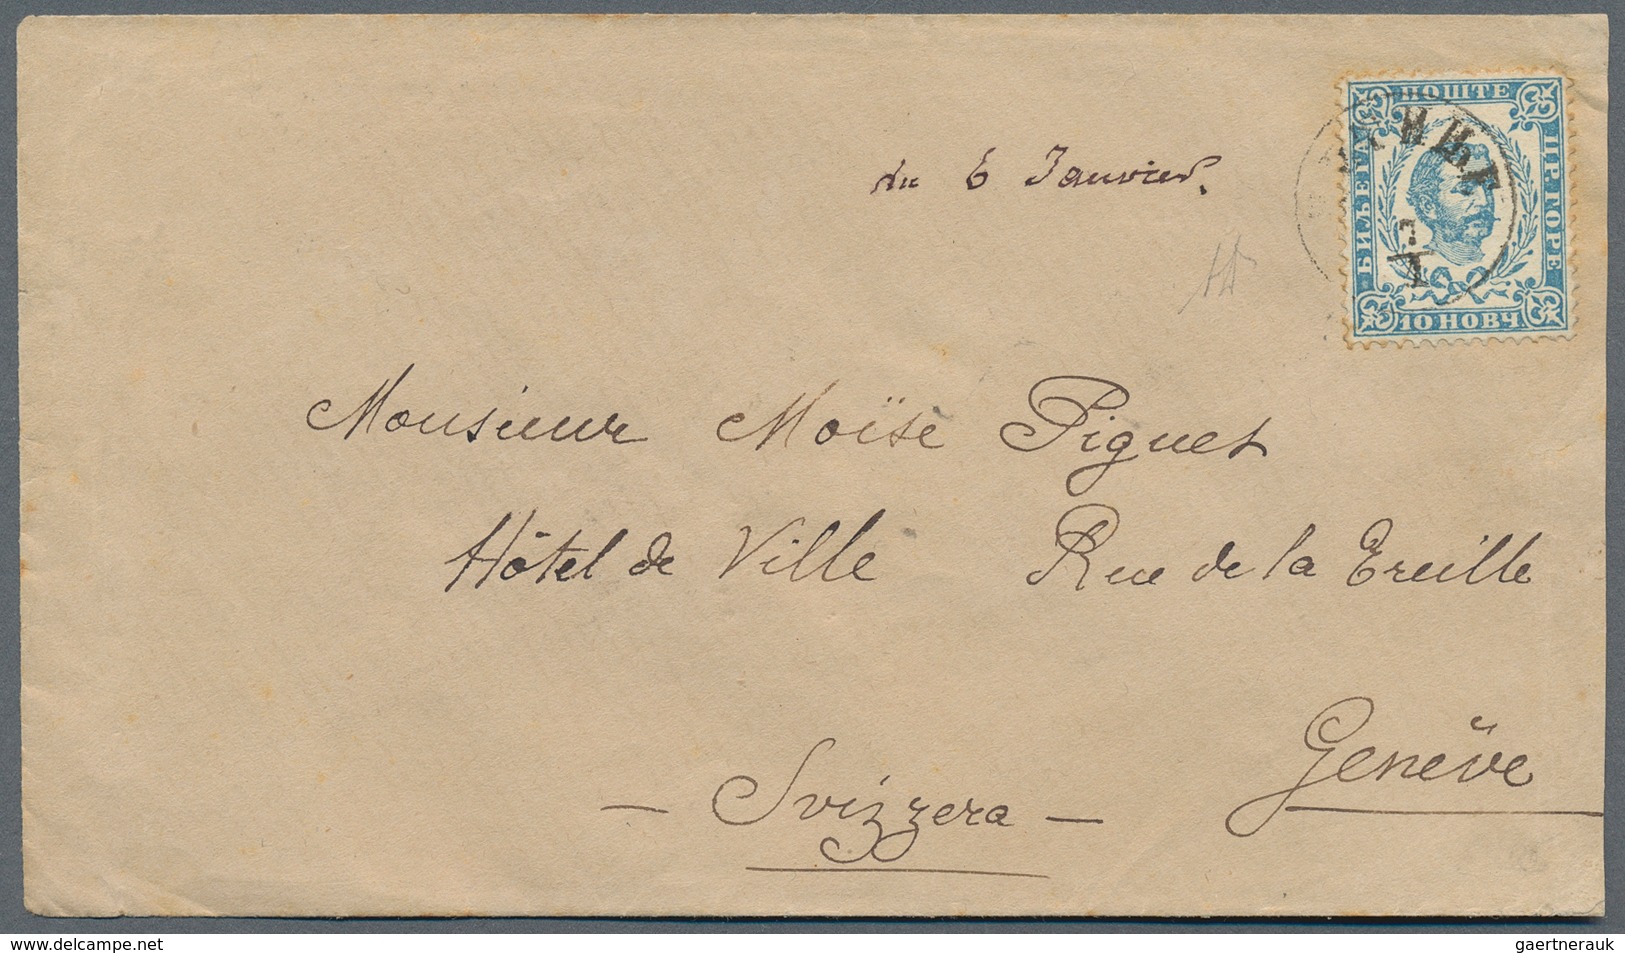 du 6 Janvier.
ПОШТЕ
БИЉЕГА
ЦР. ГОРЕ
10 НОВЧ.
Monsieur Moïse Piguet
Hôtel de Ville Rue de la Treille
Genève
— Svizzera —
delcampe.net
gaertnerauk